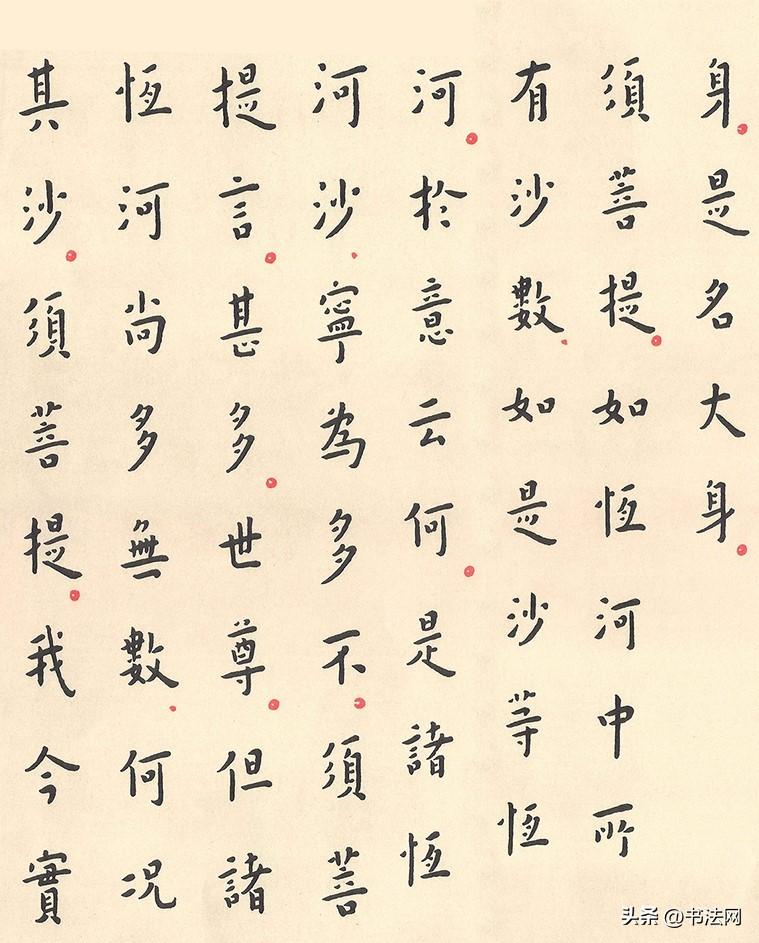 身是名大身
須菩提如恆河中所
有沙數如是沙等恆
河於意云何是諸恆
河沙寧為多不須菩
提言甚多世尊但諸
恆河尚多無數何况
其沙須菩提我今實
头条 @书法网